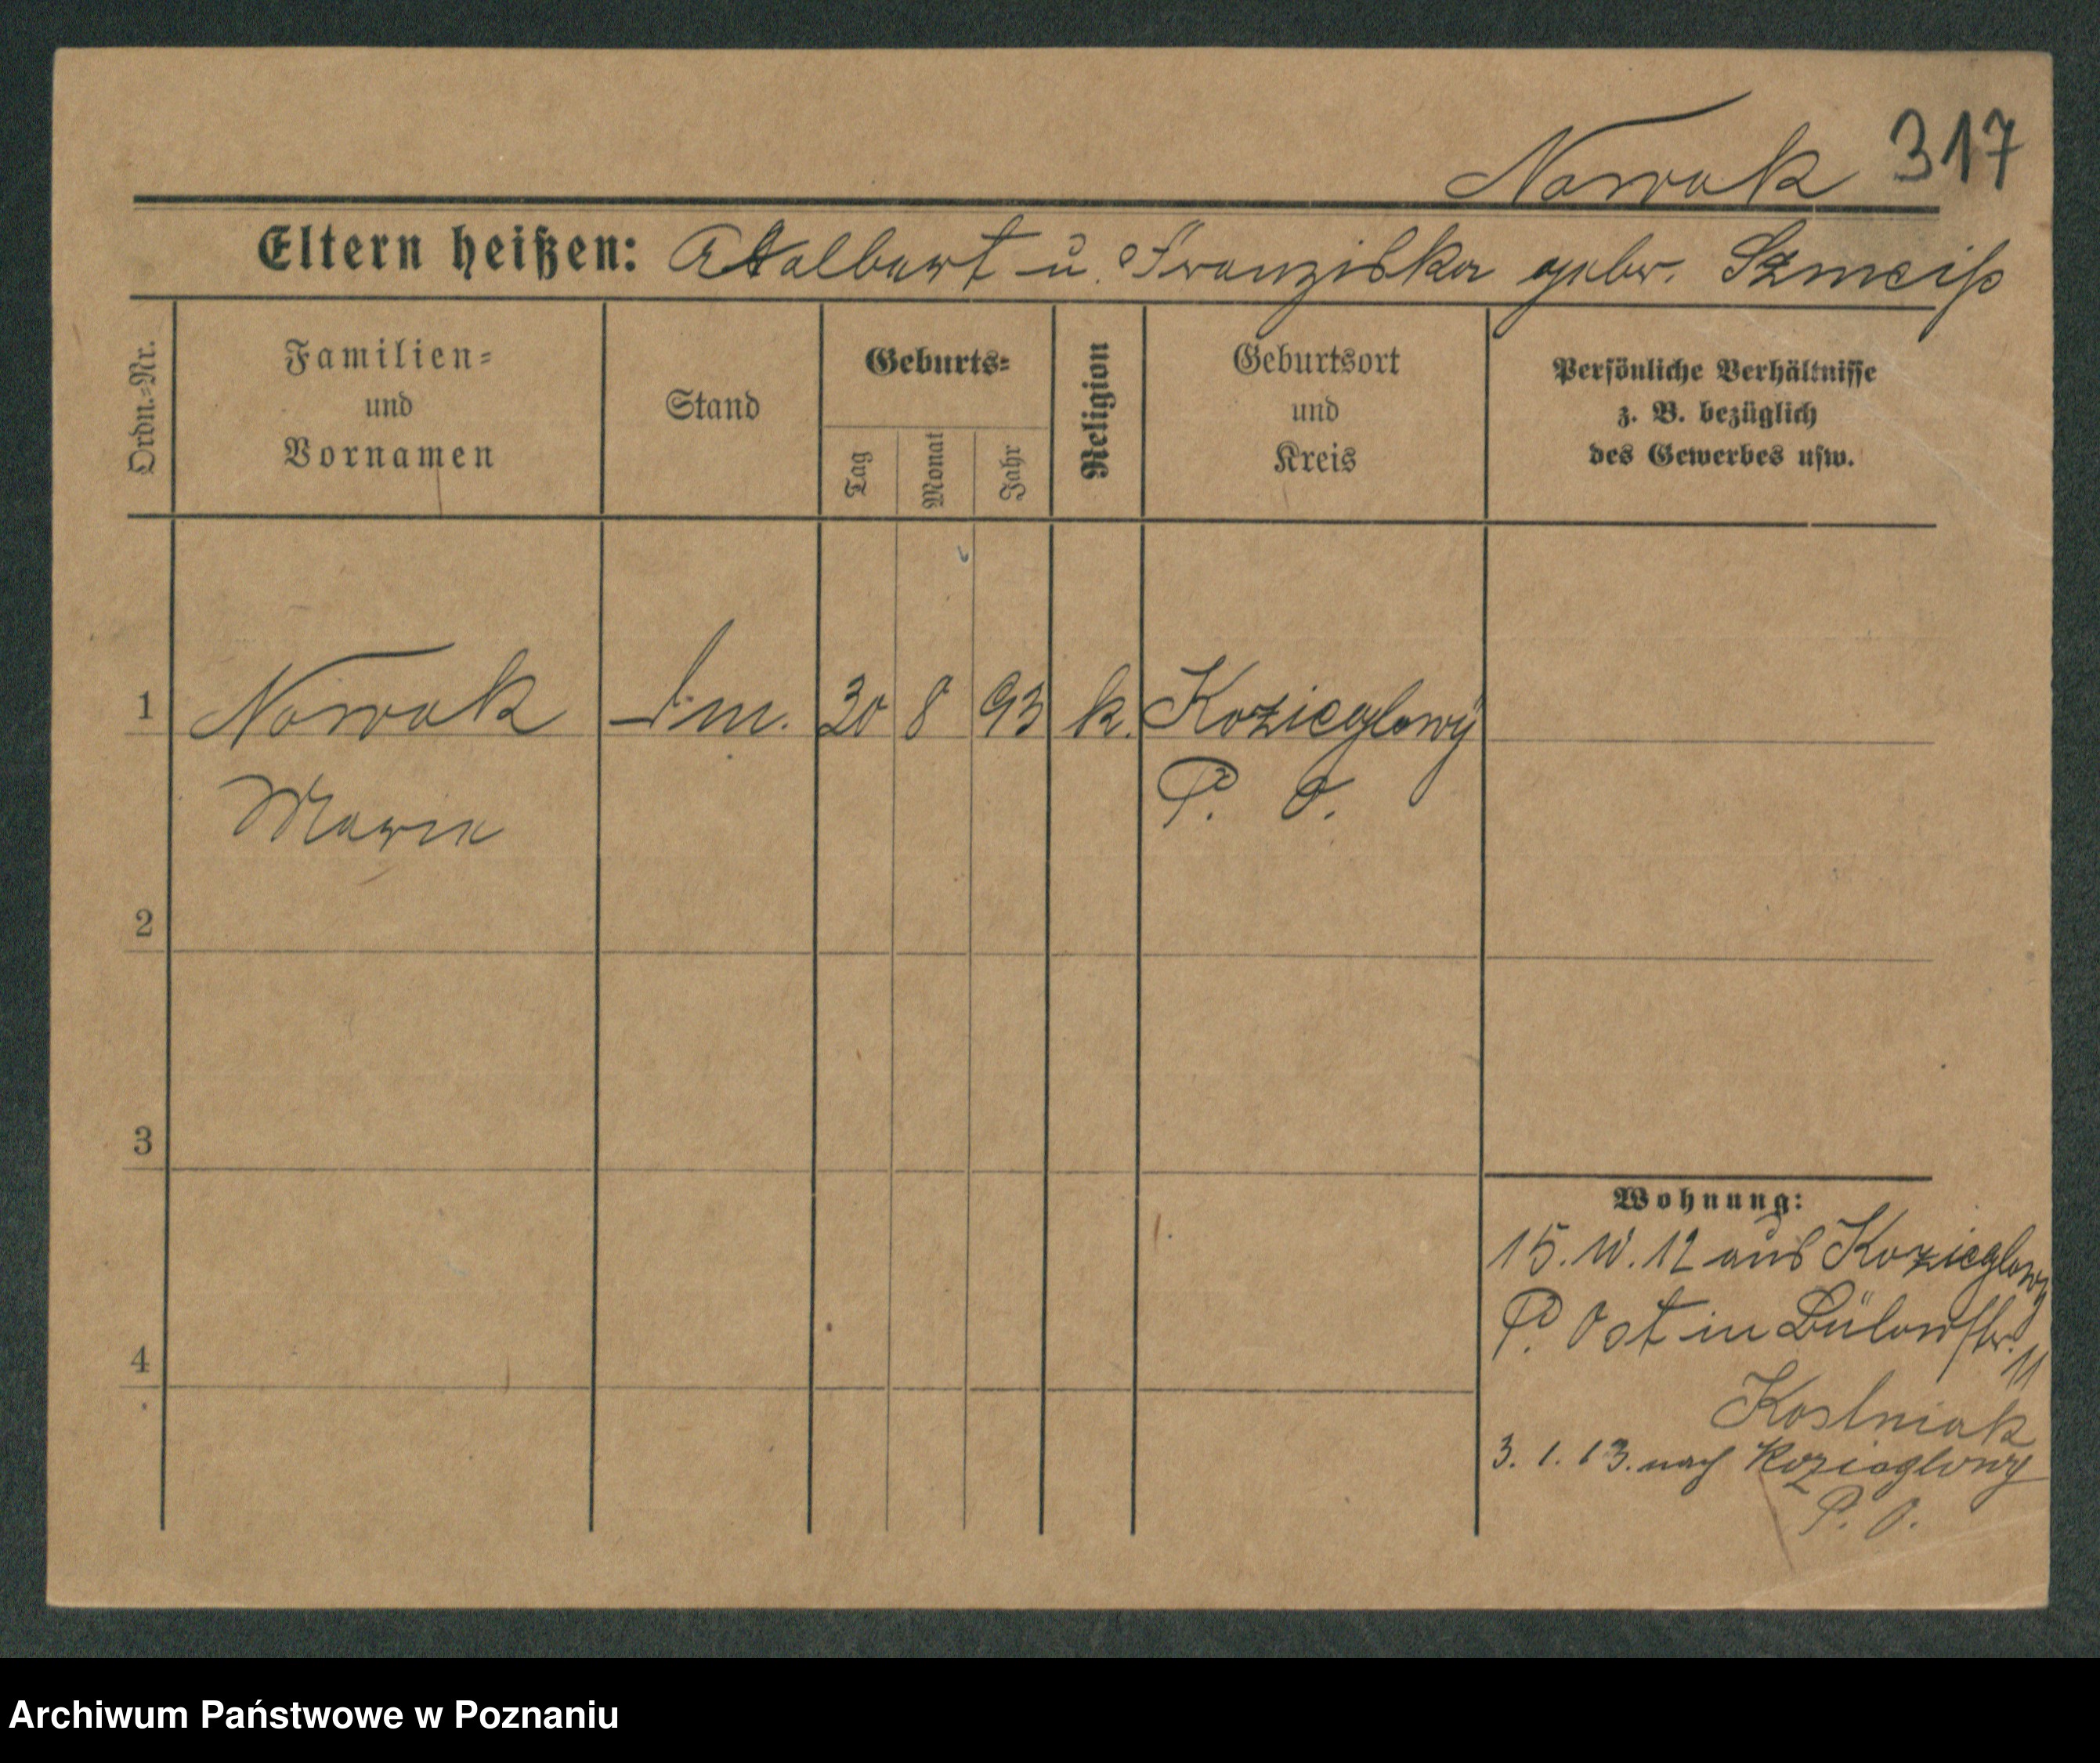 Nowak 317
Eltern heißen: Adalbert u. Franziska gebr. Szmeiß
Ordn.=Nr.
Familien=
und
Vornamen
Stand
Geburts=
Tag
Monat
Jahr
Religion
Geburtsort
und
Kreis
Persönliche Verhältnisse
z. B. bezüglich
des Gewerbes usw.
1 Nowak 30 8 93 k. Kozieglowy
Maria P. O.
2
3
4
Wohnung:
15. 10. 12 aus Kozieglowy
P. Ost in Bülowstr. 11
3. 1. 13. nach Kozieglowy
P. O.
Archiwum Państwowe w Poznaniu